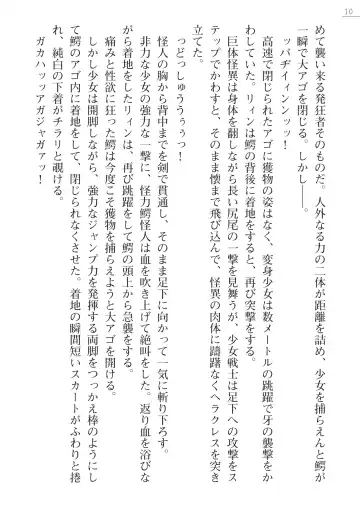 10
めて襲い来る発狂者そのものだ。人外なる力の二体が距離を詰め、少女を捕らえんと鰐が
一瞬で大アゴを閉じる。しかし――
ッバヂィィンンッッ！
高速で閉じられたアゴに獲物の姿はなく、変身少女は数メートルの跳躍で牙の襲撃をか
わしてみせた。リィンは鰐の背後に着地をすると、再び突撃する。
巨体怪異は身体を翻しながら長い尻尾の一撃を見舞うが、少女戦士は足下への攻撃をス
テップでかわすと、そのまま懐まで飛び込んで、怪異の肉体に躊躇なくヘラクレスを突き
立てた。
っどっしゅううぅぅっ！
怪人の胸から背中までを剣で貫通し、そのまま足下に向かって一気に斬り下ろす。
非力な少女の強力な一撃に、怪力鰐怪人は血を吹き上げて絶叫をした。返り血を浴びな
がら着地をしたリィンは、再び跳躍をして鰐の頭上から急襲をする。
痛みと性欲に狂った鰐は今度こそ獲物を捕らえようと大アゴを開ける。
しかし少女は開脚しながら、強力なジャンプ力を発揮する両脚をつっかえ棒のようにし
て鰐のアゴ内に着地をして、閉じられなくさせた。着地の瞬間短いスカートがふわりと捲
れ、純白の下着がチラリと覗ける。
ガカハッッアガジャガァッ！